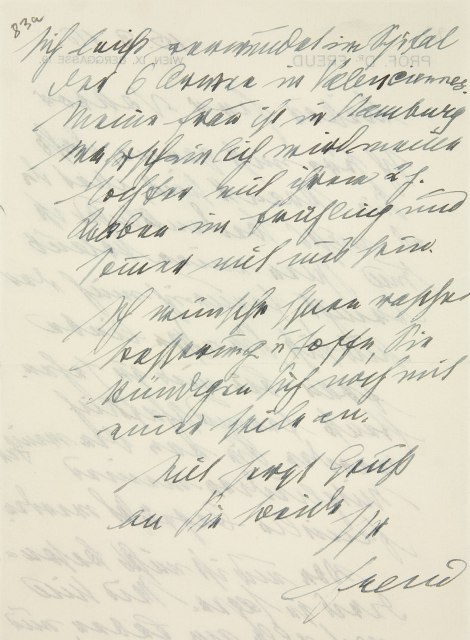 83a
PROF. Dr. FREUD WIEN, IX. BERGGASSE 19.
sich leicht verwundet im Spital
der 6 Armee in Valenciennes.
Meine Frau ist in Hamburg
Wahrscheinlich wird meine
Tochter mit ihrem 2j.
Knaben im Frühling und
Sommer mit uns sein.
Ich wünsche Ihnen rasche
Besserung u hoffe, Sie
kündigen sich noch mit
einer Zeile an.
Mit herzl Gruß
an Sie beide
Ihr
Freud